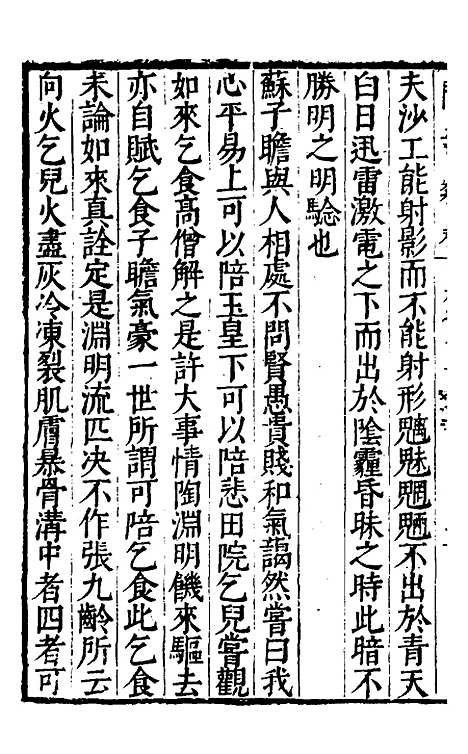 夫沙工能射影而不能射形魑魅魍魎不出於青天
白日迅雷激電之下而出於陰霾昏昧之時此暗不
勝明之明驗也
蘇子瞻與人相處不問賢愚貴賤和氣藹然嘗曰我
心平易上可以陪玉皇下可以陪悲田院乞兒嘗觀
如來乞食高僧解之是許大事情陶淵明饑來驅去
亦自賦乞食子瞻氣豪一世所謂可陪乞食此乞食
未論如來真詮定是淵明流匹决不作張九齡所云
向火乞兒火盡灰冷凍裂肌膚暴骨溝中者四者可